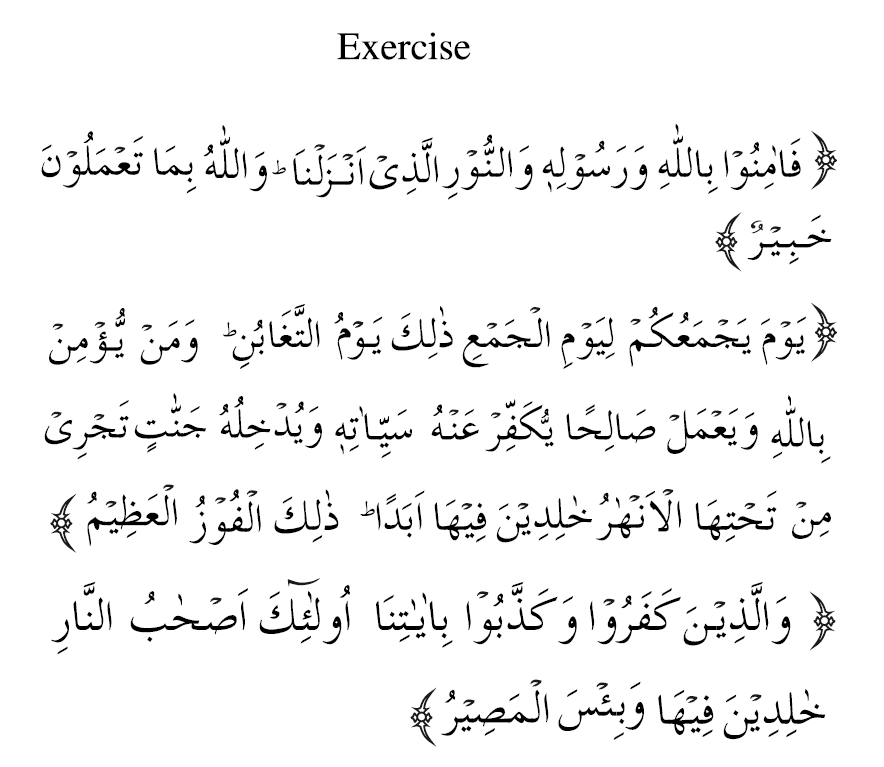 Exercise
﴿ فَاٰمِنُوۡا بِاللّٰهِ وَرَسُوۡلِهٖ وَالنُّوۡرِ الَّذِىۡۤ اَنۡزَلۡنَا ؕ وَاللّٰهُ بِمَا تَعۡمَلُوۡنَ
خَبِيۡرٌ ﴾
﴿ يَوۡمَ يَجۡمَعُكُمۡ لِيَوۡمِ الۡجَمۡعِ ذٰلِكَ يَوۡمُ التَّغَابُنِ ؕ وَمَنۡ يُّؤۡمِنۡ
بِاللّٰهِ وَيَعۡمَلۡ صَالِحًا يُّكَفِّرۡ عَنۡهُ سَيِّاٰتِهٖ وَيُدۡخِلۡهُ جَنّٰتٍ تَجۡرِىۡ
مِنۡ تَحۡتِهَا الۡاَنۡهٰرُ خٰلِدِيۡنَ فِيۡهَا اَبَدًا ؕ ذٰلِكَ الۡفَوۡزُ الۡعَظِيۡمُ ﴾
﴿ وَالَّذِيۡنَ كَفَرُوۡا وَكَذَّبُوۡا بِاٰيٰتِنَا اُولٰٓئِكَ اَصۡحٰبُ النَّارِ
خٰلِدِيۡنَ فِيۡهَا وَبِئۡسَ الۡمَصِيۡرُ ﴾